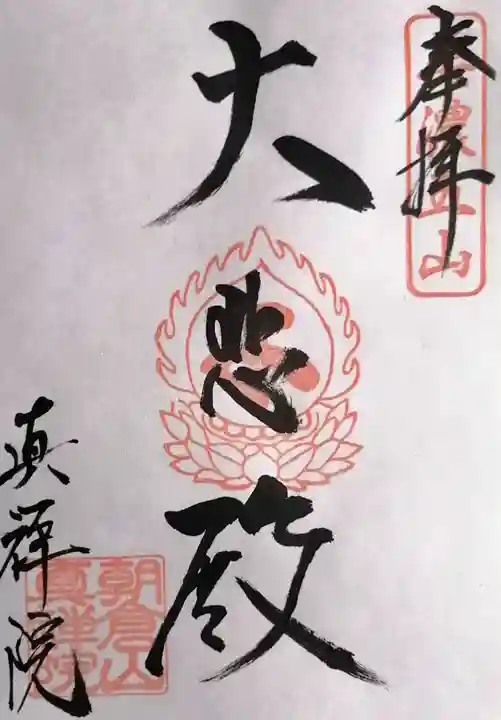 奉拝
大悲殿
真禅院
朝倉山
真禅院